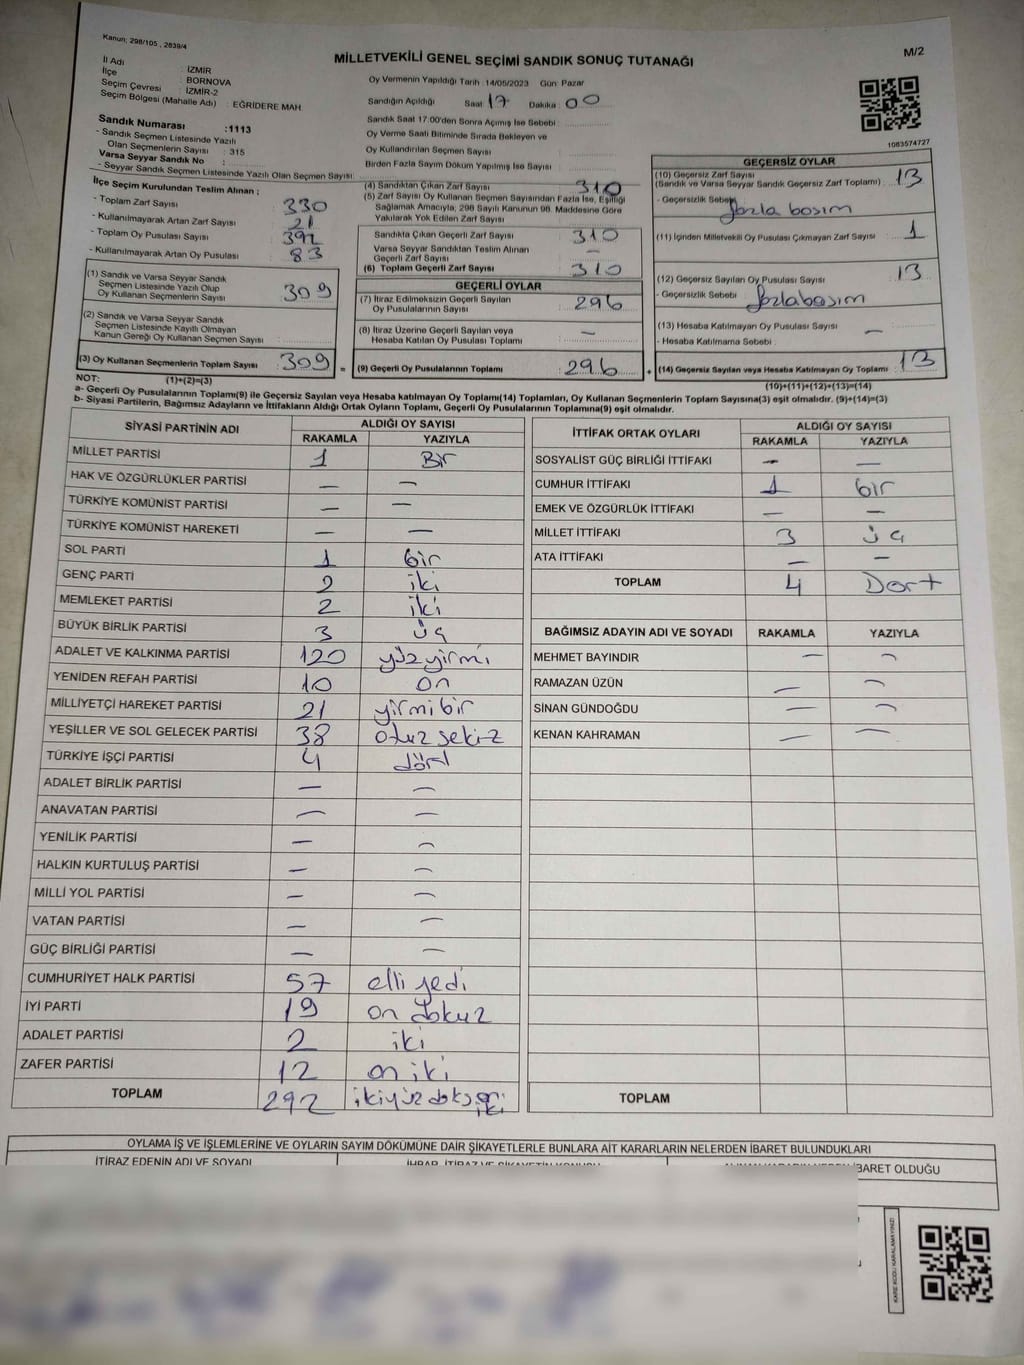 Kanun: 298/105 , 2839/4
MİLLETVEKİLİ GENEL SEÇİMİ SANDIK SONUÇ TUTANAĞI
M/2
İl Adı : İZMİR
İlçe : BORNOVA
Seçim Çevresi : İZMİR-2
Seçim Bölgesi (Mahalle Adı) : EĞRİDERE MAH.
Oy Vermenin Yapıldığı Tarih 14/05/2023 Gün: Pazar
Sandığın Açıldığı Saat 17 Dakika : 00
Sandık Saat 17:00'den Sonra Açılmış İse Sebebi :
Oy Verme Saati Bitiminde Sırada Bekleyen ve
Oy Kullandırılan Seçmen Sayısı :
Birden Fazla Sayım Döküm Yapılmış İse Sayısı :
1083574727
Sandık Numarası :1113
- Sandık Seçmen Listesinde Yazılı
Olan Seçmenlerin Sayısı : 315
Varsa Seyyar Sandık No :
- Seyyar Sandık Seçmen Listesinde Yazılı Olan Seçmen Sayısı:
İlçe Seçim Kurulundan Teslim Alınan ;
- Toplam Zarf Sayısı : 330
- Kullanılmayarak Artan Zarf Sayısı : 21
- Toplam Oy Pusulası Sayısı : 392
- Kullanılmayarak Artan Oy Pusulası : 83
(1) Sandık ve Varsa Seyyar Sandık
Seçmen Listesinde Yazılı Olup
Oy Kullanan Seçmenlerin Sayısı : 309
(2) Sandık ve Varsa Seyyar Sandık
Seçmen Listesinde Kayıtlı Olmayan
Kanun Gereği Oy Kullanan Seçmen Sayısı :
(3) Oy Kullanan Seçmenlerin Toplam Sayısı : 309
(1)+(2)=(3)
(4) Sandıktan Çıkan Zarf Sayısı : 310
(5) Zarf Sayısı Oy Kullanan Seçmen Sayısından Fazla İse, Eşitliği
Sağlamak Amacıyla, 298 Sayılı Kanunun 98. Maddesine Göre
Yakılarak Yok Edilen Zarf Sayısı :
Sandıkta Çıkan Geçerli Zarf Sayısı : 310
Varsa Seyyar Sandıktan Teslim Alınan
Geçerli Zarf Sayısı : —
(6) Toplam Geçerli Zarf Sayısı : 310
GEÇERLİ OYLAR
(7) İtiraz Edilmeksizin Geçerli Sayılan
Oy Pusulalarının Sayısı : 296
(8) İtiraz Üzerine Geçerli Sayılan veya
Hesaba Katılan Oy Pusulası Toplamı : —
= (9) Geçerli Oy Pusulalarının Toplamı : 296
GEÇERSİZ OYLAR
(10) Geçersiz Zarf Sayısı
(Sandık ve Varsa Seyyar Sandık Geçersiz Zarf Toplamı) : 13
- Geçersizlik Sebebi : fazla basım
(11) İçinden Milletvekili Oy Pusulası Çıkmayan Zarf Sayısı : 1
(12) Geçersiz Sayılan Oy Pusulası Sayısı : 13
- Geçersizlik Sebebi : fazlabasım
(13) Hesaba Katılmayan Oy Pusulası Sayısı : —
- Hesaba Katılmama Sebebi :
+ (14) Geçersiz Sayılan veya Hesaba Katılmayan Oy Toplamı : 13
(10)+(11)+(12)+(13)=(14)
NOT:
a- Geçerli Oy Pusulalarının Toplamı(9) ile Geçersiz Sayılan veya Hesaba katılmayan Oy Toplamı(14) Toplamları, Oy Kullanan Seçmenlerin Toplam Sayısına(3) eşit olmalıdır. (9)+(14)=(3)
b- Siyasi Partilerin, Bağımsız Adayların ve İttifakların Aldığı Ortak Oyların Toplamı, Geçerli Oy Pusulalarının Toplamına(9) eşit olmalıdır.
SİYASİ PARTİNİN ADI ALDIĞI OY SAYISI
RAKAMLA YAZIYLA
MİLLET PARTİSİ 1 Bir
HAK VE ÖZGÜRLÜKLER PARTİSİ — —
TÜRKİYE KOMÜNİST PARTİSİ — —
TÜRKİYE KOMÜNİST HAREKETİ — —
SOL PARTİ 1 bir
GENÇ PARTİ 2 iki
MEMLEKET PARTİSİ 2 iki
BÜYÜK BİRLİK PARTİSİ 3 üç
ADALET VE KALKINMA PARTİSİ 120 yüzyirmi
YENİDEN REFAH PARTİSİ 10 on
MİLLİYETÇİ HAREKET PARTİSİ 21 yirmibir
YEŞİLLER VE SOL GELECEK PARTİSİ 38 otuz sekiz
TÜRKİYE İŞÇİ PARTİSİ 4 dört
ADALET BİRLİK PARTİSİ — —
ANAVATAN PARTİSİ — —
YENİLİK PARTİSİ — —
HALKIN KURTULUŞ PARTİSİ — —
MİLLİ YOL PARTİSİ — —
VATAN PARTİSİ — —
GÜÇ BİRLİĞİ PARTİSİ — —
CUMHURİYET HALK PARTİSİ 57 elli yedi
İYİ PARTİ 19 on dokuz
ADALET PARTİSİ 2 iki
ZAFER PARTİSİ 12 on iki
TOPLAM 292 ikiyüz doksan iki
İTTİFAK ORTAK OYLARI ALDIĞI OY SAYISI
RAKAMLA YAZIYLA
SOSYALİST GÜÇ BİRLİĞİ İTTİFAKI — —
CUMHUR İTTİFAKI 1 bir
EMEK VE ÖZGÜRLÜK İTTİFAKI — —
MİLLET İTTİFAKI 3 üç
ATA İTTİFAKI — —
TOPLAM 4 Dört
BAĞIMSIZ ADAYIN ADI VE SOYADI RAKAMLA YAZIYLA
MEHMET BAYINDIR — —
RAMAZAN ÜZÜN — —
SİNAN GÜNDOĞDU — —
KENAN KAHRAMAN — —
TOPLAM
OYLAMA İŞ VE İŞLEMLERİNE VE OYLARIN SAYIM DÖKÜMÜNE DAİR ŞİKAYETLERLE BUNLARA AİT KARARLARIN NELERDEN İBARET BULUNDUKLARI
İTİRAZ EDENİN ADI VE SOYADI
İBARET OLDUĞU
KARE KODU KARALAMAYINIZ!